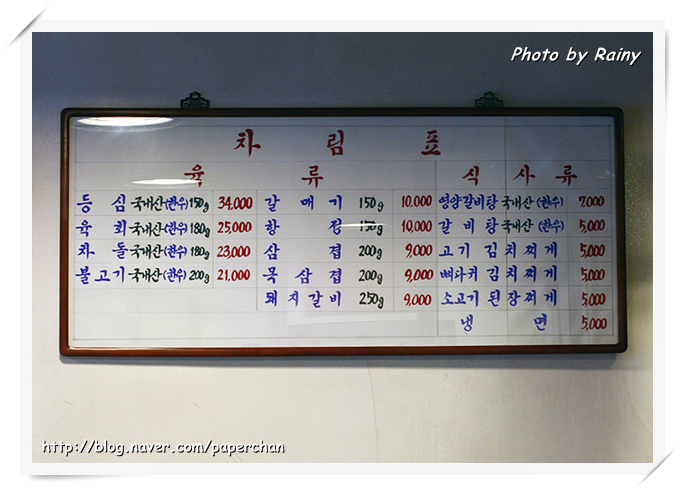 Photo by Rainy
차 림 표
육 류
식 사 류
등 심 국내산(한우) 150g 34,000
육 회 국내산(한우) 180g 25,000
차 돌 국내산(한우) 180g 23,000
불고기 국내산(한우) 200g 21,000
갈 매 기 150g 10,000
항 정 150g 10,000
삼 겹 200g 9,000
목 삼 겹 200g 9,000
돼지갈비 250g 9,000
영양갈비탕 국내산 (한우) 7,000
갈 비 탕 국내산 (한우) 5,000
고기 김치찌게 5,000
뼈다귀 김치찌게 5,000
소고기 된장찌게 5,000
냉 면 5,000
http://blog.naver.com/paperchan